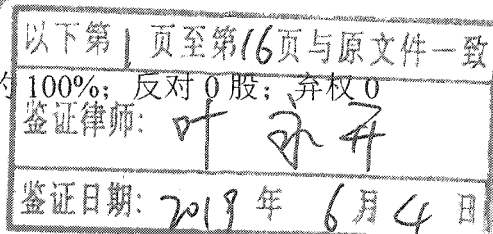 以下第1页至第16页与原文件一致
100%；反对 0 股；弃权 0
鉴证律师：叶永开
鉴证日期：2019年6月4日